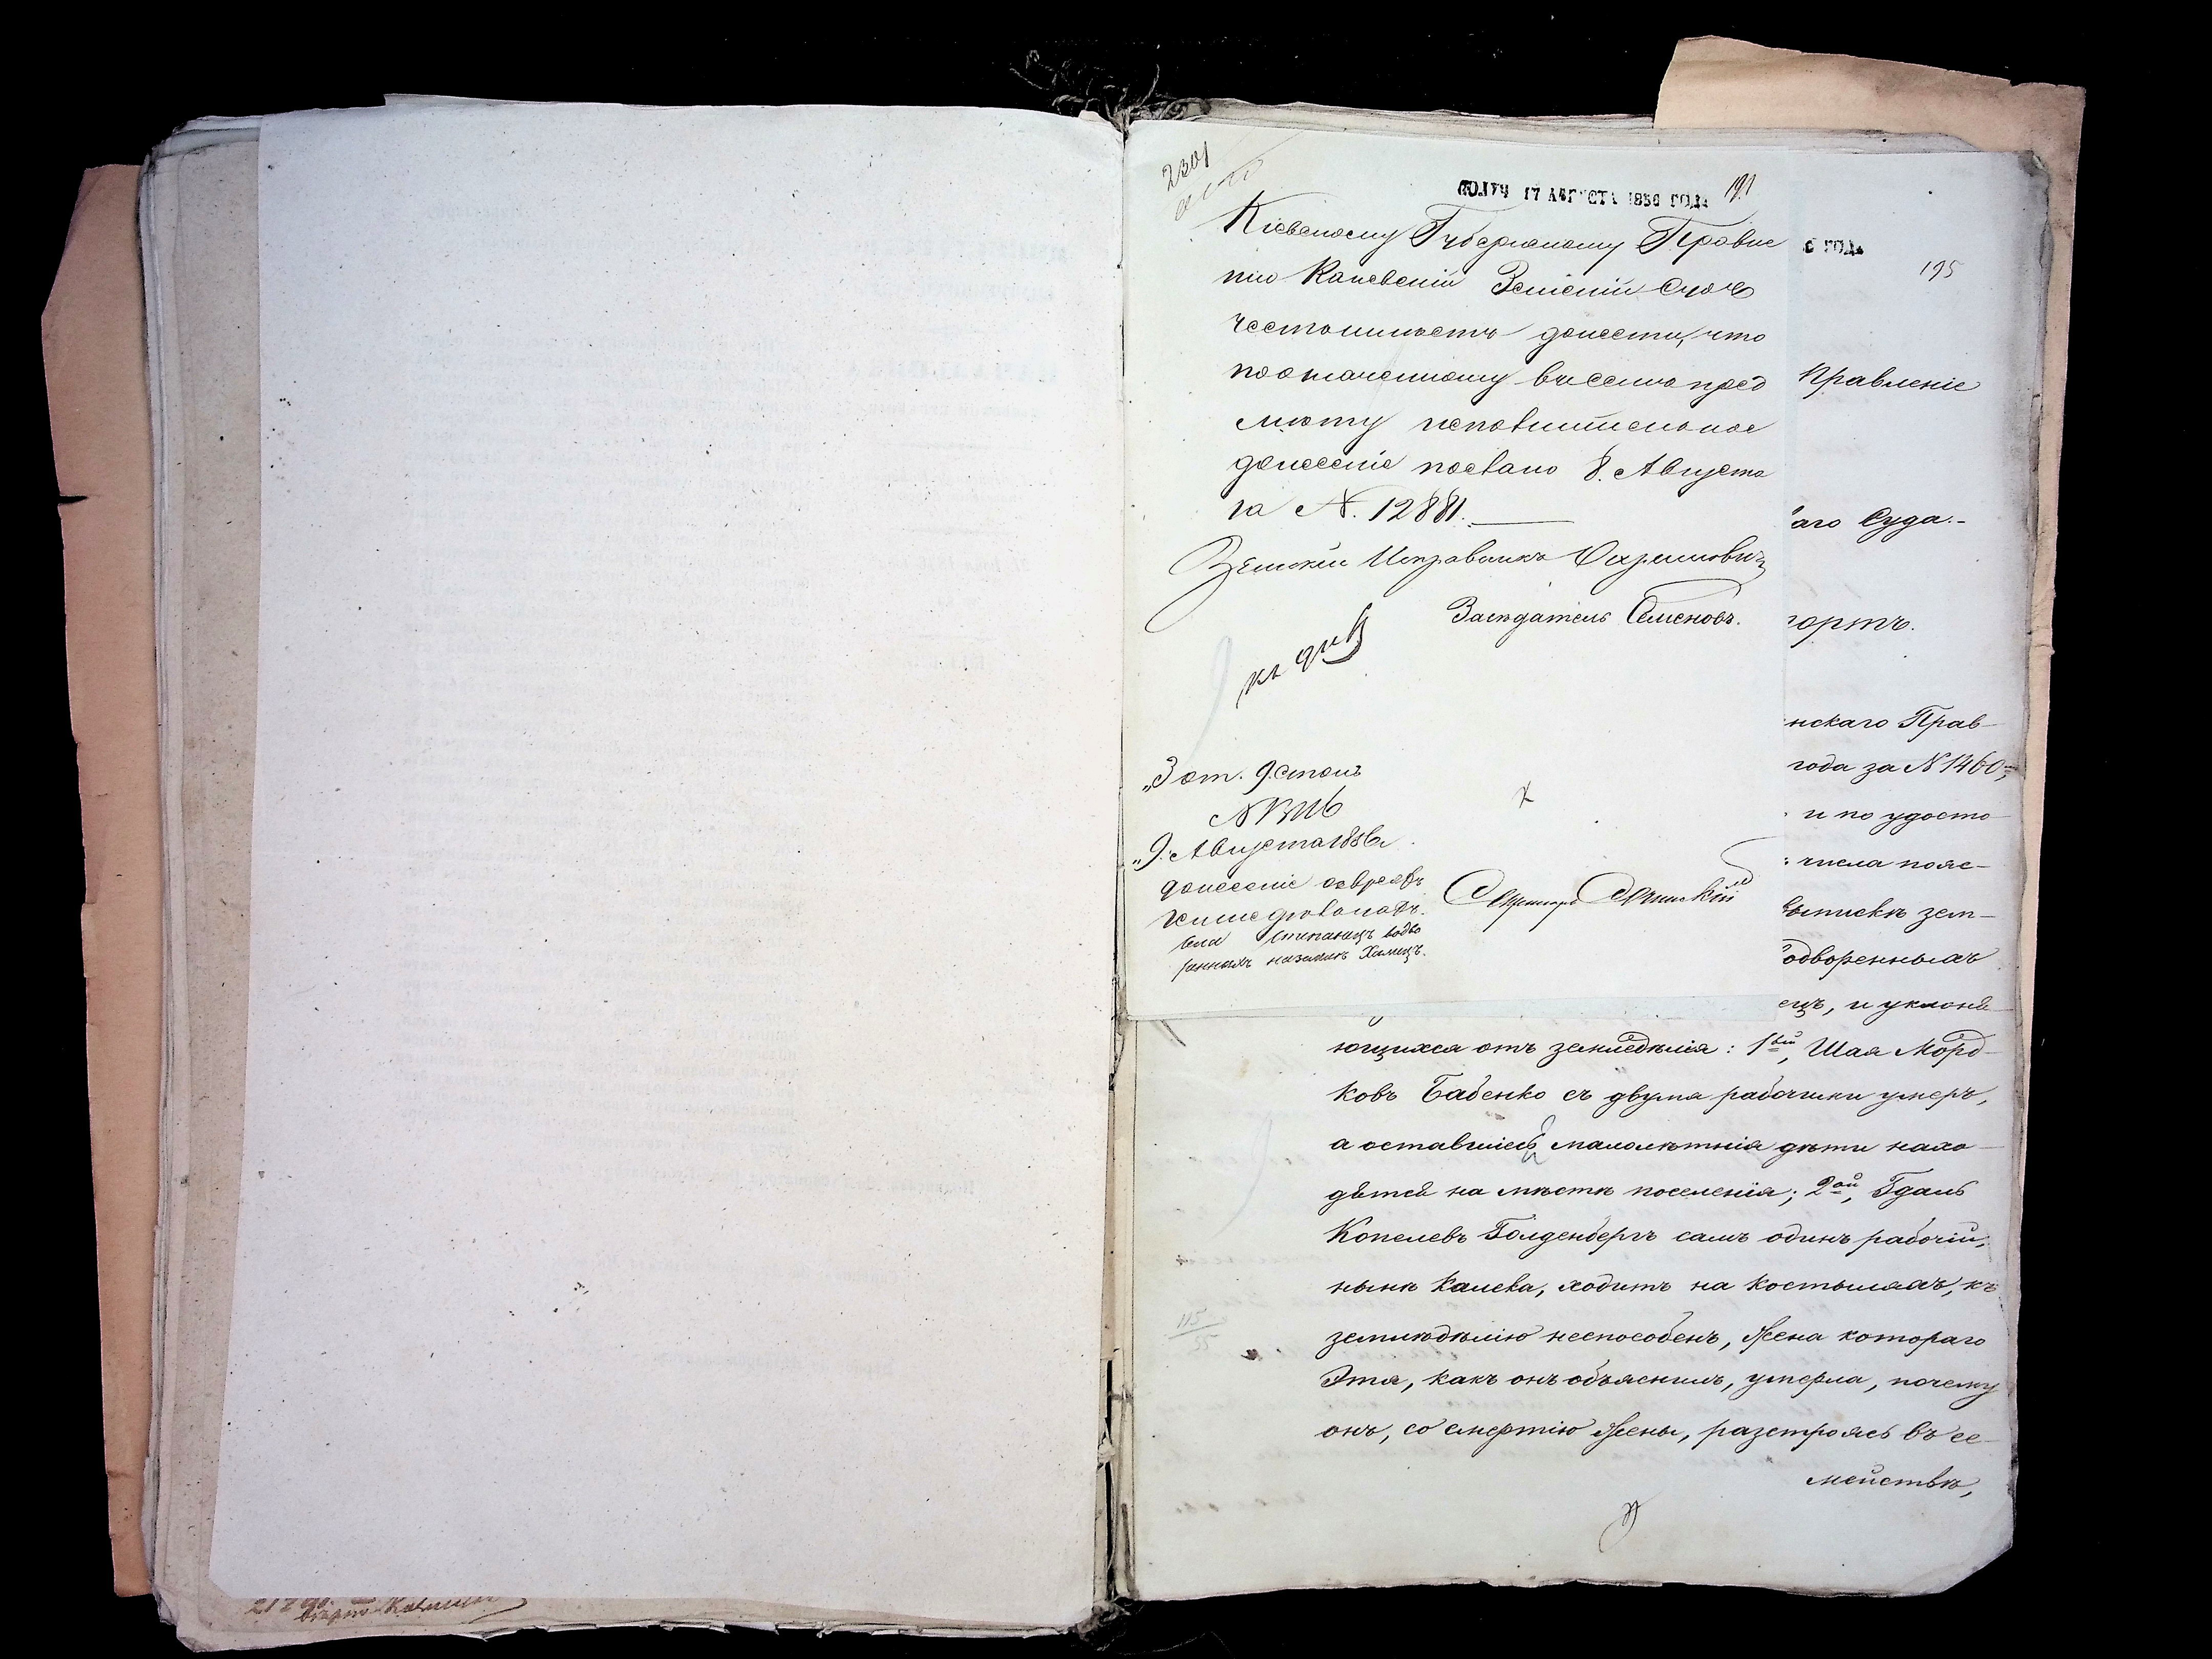 2301
ПОЛУЧ 17 АВГУСТА 1856 ГОДА 191
Кіевскому Губернскому Правле
нію Каневскій Земскій Судъ
честь имѣетъ донести, что
по означенному въ семъ пред
мѣту исполнительное
донесеніе послано 8. Августа
за N. 12881.
Земскій Исправникъ
Засѣдатель Семеновъ.
къ дѣлу
3 от. 9. столъ
N
9. Августа 1856 г.
донесеніе о евреяхъ
земледѣльцахъ
села Степанецъ водво
ренныхъ на земляхъ Хамецъ.
Секретарь
6 ГОДА
195
Правленіе
аго Суда.-
портъ.
нскаго Прав-
года за N 1460,
и по удосто-
числа пояс-
выпискѣ зем-
одворенныхъ
ецъ, и уклоня-
ющихся отъ земледѣлія: 1вый, Шая Морд-
ковъ Бабенко съ двумя рабочими умеръ,
а оставшіеся малолѣтнія дѣти нахо-
дѣтся на мѣстѣ поселенія; 2ой, Гдаль
Копелевъ Голденбергъ самъ одинъ рабочій,
нынѣ калека, ходитъ на костыляхъ, къ
земледѣлію неспособенъ, жена котораго
Этя, какъ онъ объяснилъ, умерла, почему
онъ, со смертію жены, разстроясь въ се-
мействѣ,
115
55